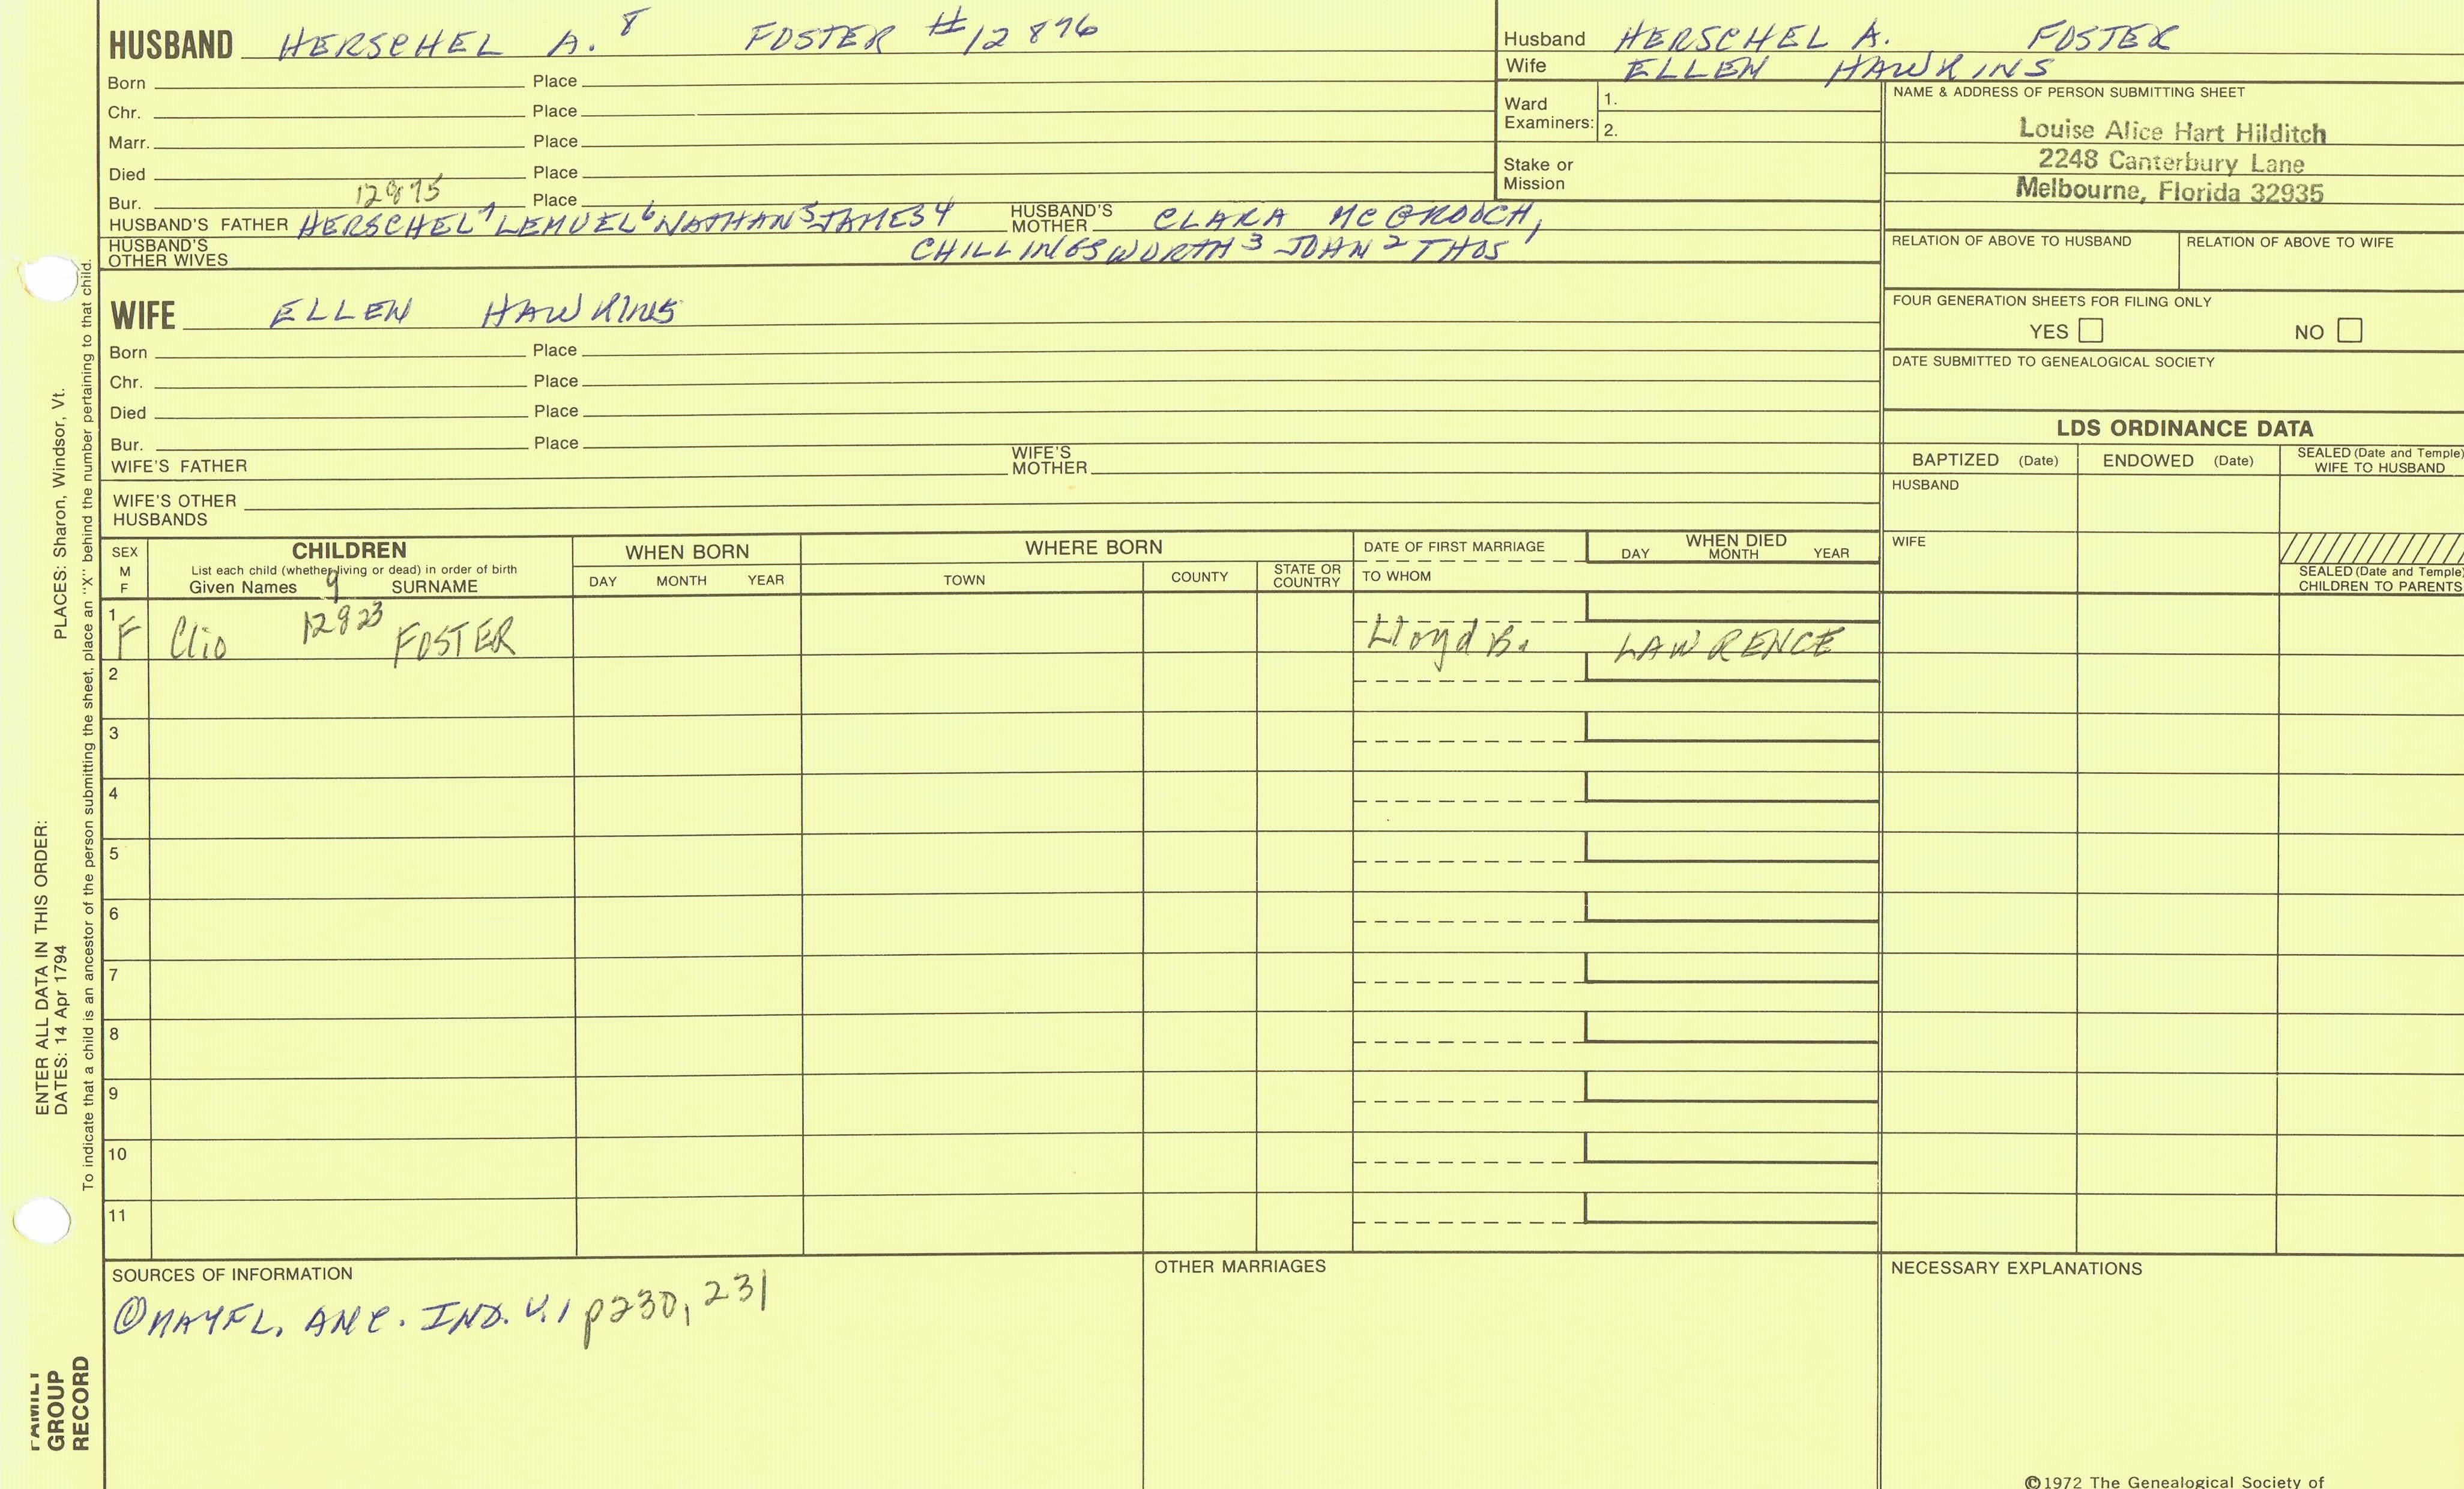 HUSBAND HERSCHEL A. 8 FOSTER #12896
Born Place
Chr. Place
Marr. Place
Died Place
Bur. 12895 Place
HUSBAND'S FATHER HERSCHEL 7 LEMUEL 6 NATHAN 5 JAMES 4 HUSBAND'S MOTHER CLARA MCGROOCH,
HUSBAND'S OTHER WIVES CHILLINGSWORTH 3 JOHN 2 THOS 1
WIFE ELLEN HAWKINS
Born Place
Chr. Place
Died Place
Bur. Place
WIFE'S FATHER WIFE'S MOTHER
WIFE'S OTHER HUSBANDS
Husband HERSCHEL A. FOSTER
Wife ELLEN HAWKINS
Ward Examiners: 1.
2.
Stake or Mission
NAME & ADDRESS OF PERSON SUBMITTING SHEET
Louise Alice Hart Hilditch
2248 Canterbury Lane
Melbourne, Florida 32935
RELATION OF ABOVE TO HUSBAND RELATION OF ABOVE TO WIFE
FOUR GENERATION SHEETS FOR FILING ONLY
YES NO
DATE SUBMITTED TO GENEALOGICAL SOCIETY
LDS ORDINANCE DATA
BAPTIZED (Date) ENDOWED (Date) SEALED (Date and Temple) WIFE TO HUSBAND
HUSBAND
WIFE
SEALED (Date and Temple) CHILDREN TO PARENTS
SEX M F CHILDREN WHEN BORN WHERE BORN DATE OF FIRST MARRIAGE WHEN DIED
List each child (whether living or dead) in order of birth
Given Names 9 SURNAME DAY MONTH YEAR TOWN COUNTY STATE OR COUNTRY TO WHOM DAY MONTH YEAR
1 F Clio 12923 FOSTER Lloyd B. LAWRENCE
2
3
4
5
6
7
8
9
10
11
SOURCES OF INFORMATION
① MAYFL. ANC. IND. V.1 p230, 231
OTHER MARRIAGES
NECESSARY EXPLANATIONS
©1972 The Genealogical Society of
ENTER ALL DATA IN THIS ORDER:
DATES: 14 Apr 1794 PLACES: Sharon, Windsor, Vt.
To indicate that a child is an ancestor of the person submitting the sheet, place an "X" behind the number pertaining to that child.
FAMILY
GROUP
RECORD